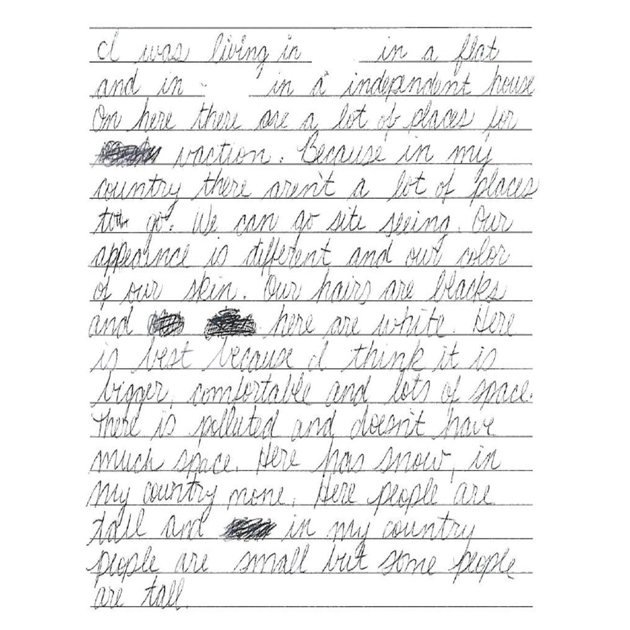 I was living in in a flat
and in in a independent house
On here there are a lot of places for
vaction. Because in my
country there aren't a lot of places
to go. We can go site seeing. Our
appearnce is different and our color
of our skin. Our hairs are blacks
and here are white. Here
is best because I think it is
bigger, comfortable and lots of space.
There is polluted and doesn't have
much space. Here has snow, in
my country none. Here people are
tall and in my country
people are small but some people
are tall.